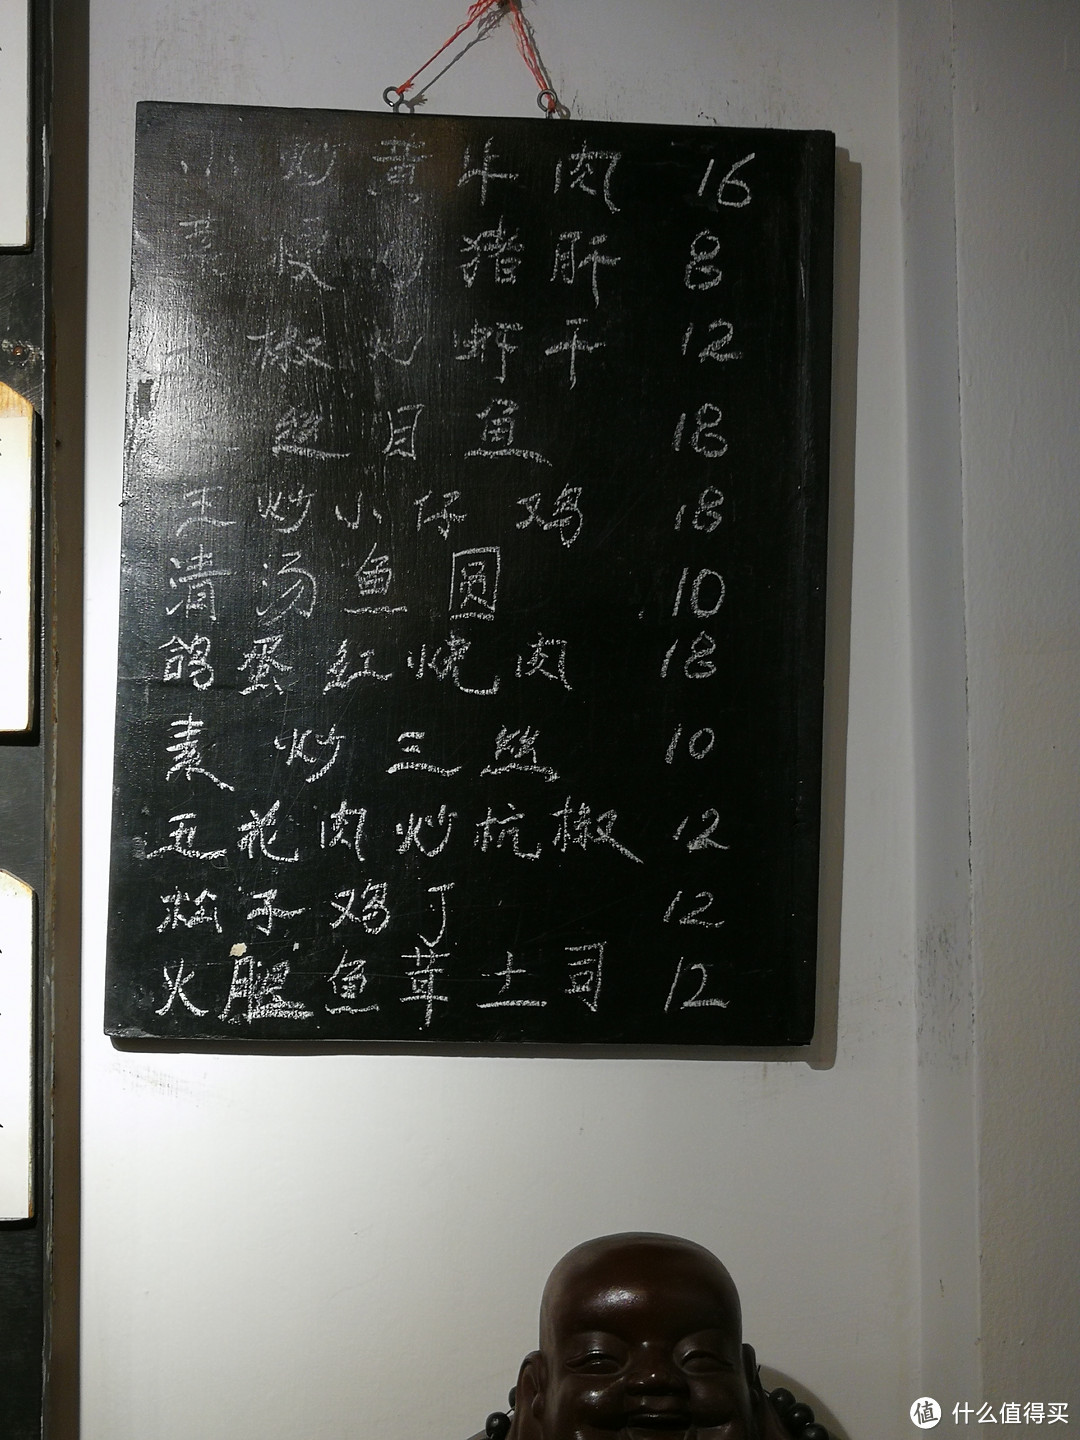 小炒黄牛肉 16
韭炒猪肝 8
椒炒虾干 12
丝目鱼 18
王炒小仔鸡 18
清汤鱼圆 10
鸽蛋红烧肉 18
素炒三丝 10
五花肉炒杭椒 12
松子鸡丁 12
火腿鱼茸土司 12
值 什么值得买